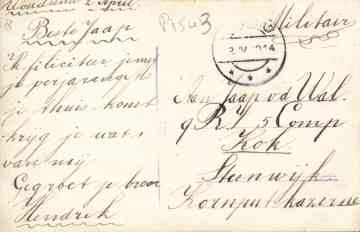 2 April
Beste Jaap
Ik feliciteer je met
je verjaardag
je thuis komt
krijg je wat
van mij
Gegroet je broer
Hendrik
Militair
Aan Jaap vd Wal.
9 R I 5 Comp
Kok
Steenwijk
Kornput kazerne